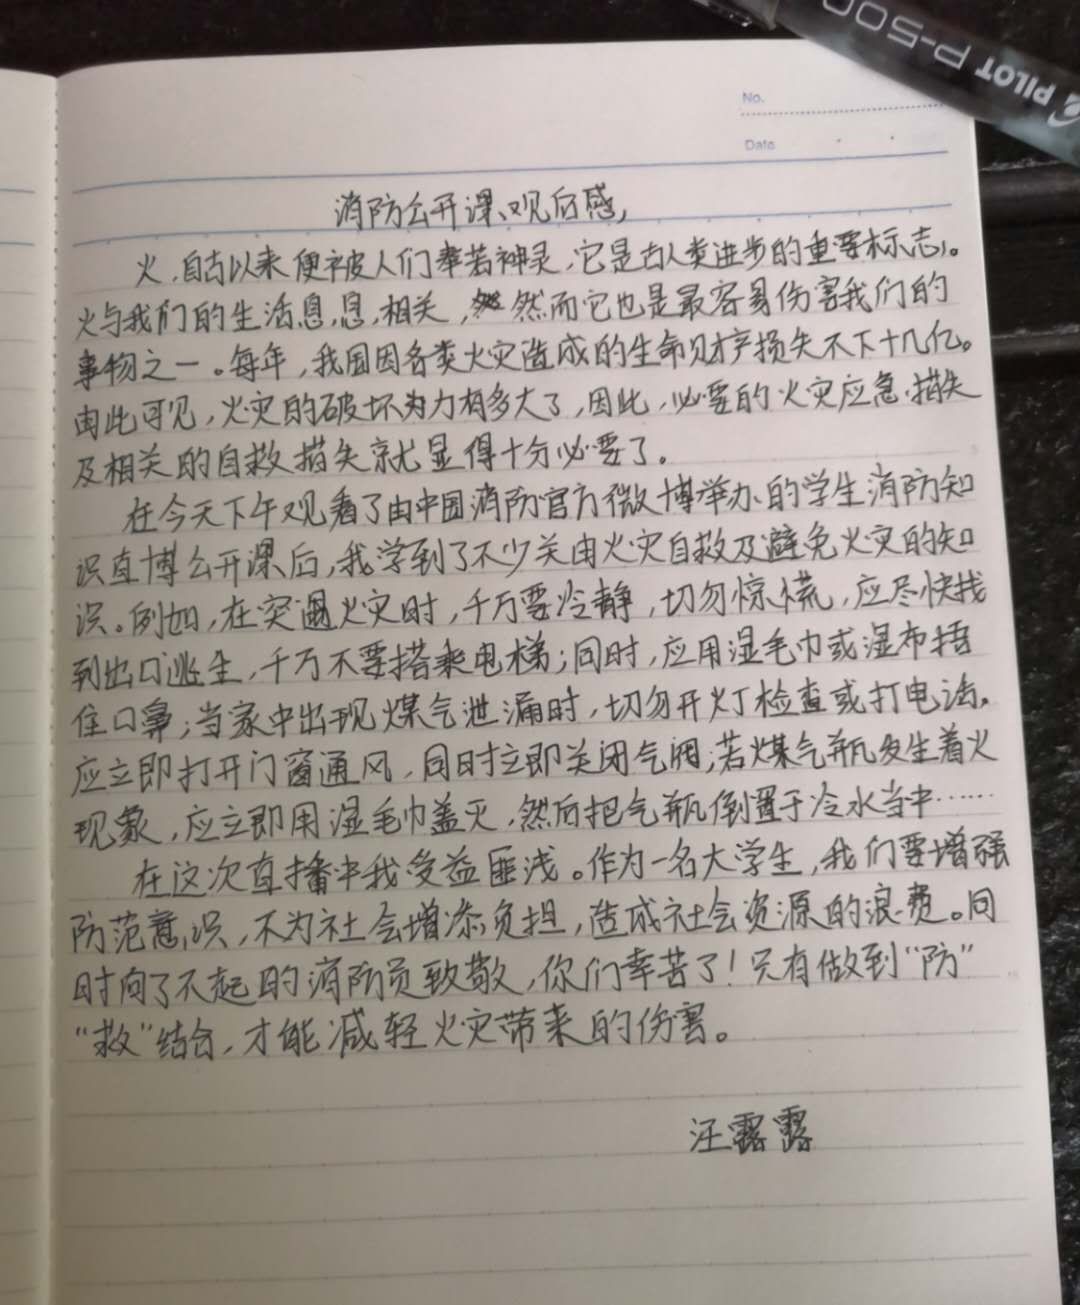 PILOT P-500
No.
Date
消防公开课观后感
火,自古以来便被人们奉若神灵,它是古人类进步的重要标志。
火与我们的生活息息相关,然而它也是最容易伤害我们的
事物之一。每年,我国因各类火灾造成的生命财产损失不下十几亿。
由此可见,火灾的破坏力有多大了,因此,必要的火灾应急措失
及相关的自救措失就显得十分必要了。
在今天下午观看了由中国消防官方微博举办的学生消防知
识直博公开课后,我学到了不少关由火灾自救及避免火灾的知
识。例如,在突遇火灾时,千万要冷静,切勿惊慌,应尽快找
到出口逃生,千万不要搭乘电梯;同时,应用湿毛巾或湿布捂
住口鼻;当家中出现煤气泄漏时,切勿开灯检查或打电话,
应立即打开门窗通风,同时立即关闭气阀;若煤气瓶发生着火
现象,应立即用湿毛巾盖灭,然后把气瓶倒置于冷水当中……
在这次直播中我受益匪浅。作为一名大学生,我们要增强
防范意识,不为社会增添负担,造成社会资源的浪费。同
时向了不起的消防员致敬,你们幸苦了!只有做到“防”
“救”结合,才能减轻火灾带来的伤害。
汪露露